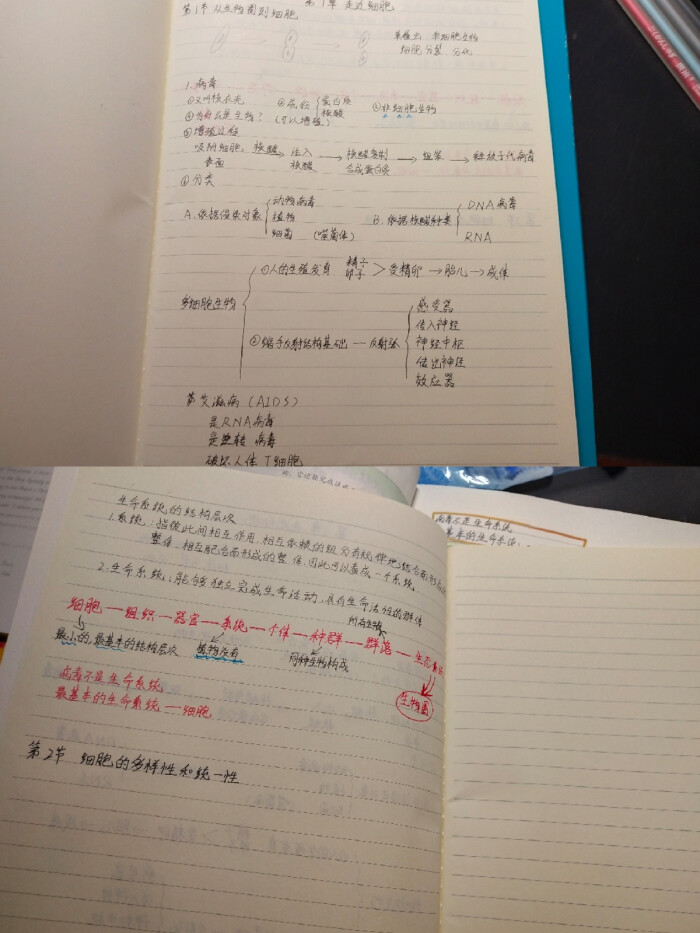 第1章 走近细胞
第1节 从生物圈到细胞
草履虫：单细胞生物
细胞分裂、分化
1.病毒
①又叫核衣壳 ②成分 蛋白质 核酸 ③非细胞生物
④为什么是生物？(可以增殖)
⑤增殖过程
吸附细胞表面 核酸 → 注入核酸 → 核酸复制 合成蛋白质 → 组装 → 释放子代病毒
⑥分类
A.依据侵染对象 动物病毒 植物 细菌 (噬菌体) B.依据核酸种类 DNA病毒 RNA
多细胞生物
①人的生殖发育 精子 卵子 > 受精卵 → 胎儿 → 成体
②缩手反射结构基础 — 反射弧 感受器
传入神经
神经中枢
传出神经
效应器
艾滋病 (AIDS)
是RNA病毒
是逆转 病毒
破坏人体T细胞
生命系统的结构层次
1.系统：指彼此间相互作用、相互依赖的组分有规律地结合而形成的
整体，相互配合而形成的整体，因此可以看成一个系统。
2.生命系统：能够独立完成生命活动，具有生命活性的群体
所有生物
细胞—组织—器官—系统—个体—种群—群落—生态系统
最小的,最基本的结构层次 植物没有 同种生物构成
生物圈
病毒不是生命系统
最基本的生命系统—细胞
第2节 细胞的多样性和统一性
病毒不是生命系统
基本的生命系统